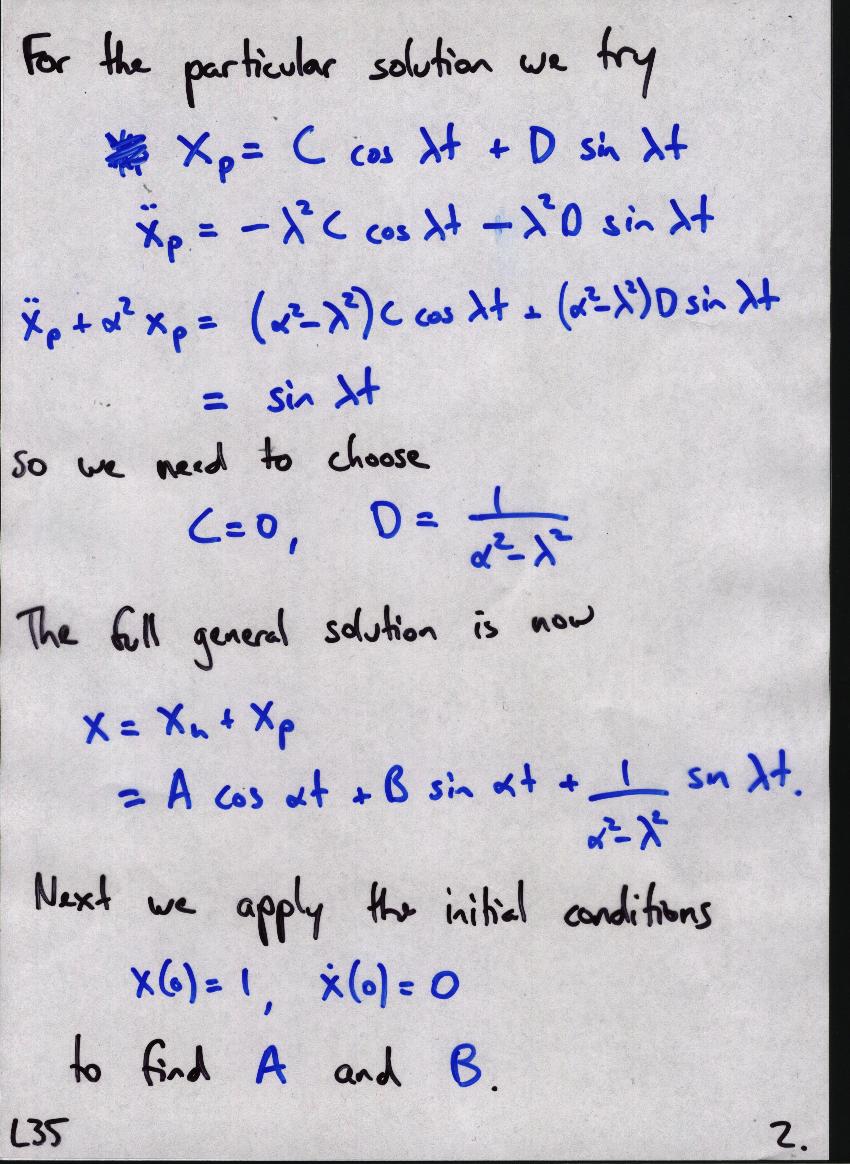 For the particular solution we try
Xₚ = C cos λt + D sin λt
ẍₚ = −λ²C cos λt − λ²D sin λt
ẍₚ + α² xₚ = (α²−λ²)C cos λt + (α²−λ²)D sin λt
= sin λt
so we need to choose
C=0, D = 1/(α²−λ²)
The full general solution is now
X = Xₕ + Xₚ
= A cos αt + B sin αt + 1/(α²−λ²) sn λt.
Next we apply the initial conditions
X(0) = 1, ẋ(0) = 0
to find A and B.
L35 2.